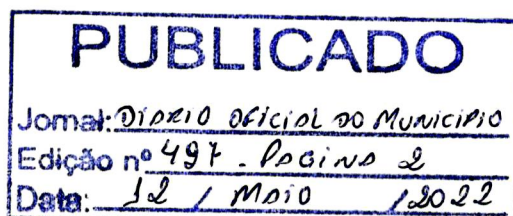 PUBLICADO
Jornal: DIÁRIO OFICIAL DO MUNICIPIO
Edição nº 497 - PAGINA 2
Data: 12 / MAIO / 2022